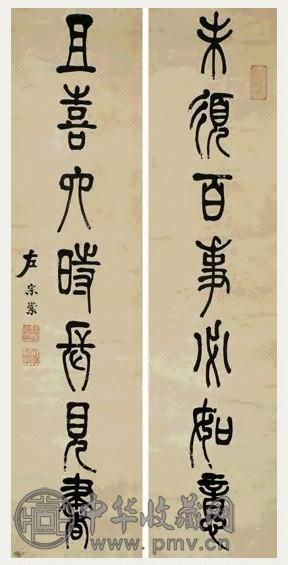 未須百事必如意
且喜六時長見書
左宗棠
中华收藏网
www.pmv.cn